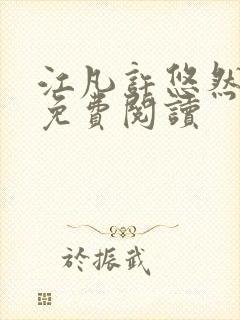 江凡許悠然
免費閱讀
於振武